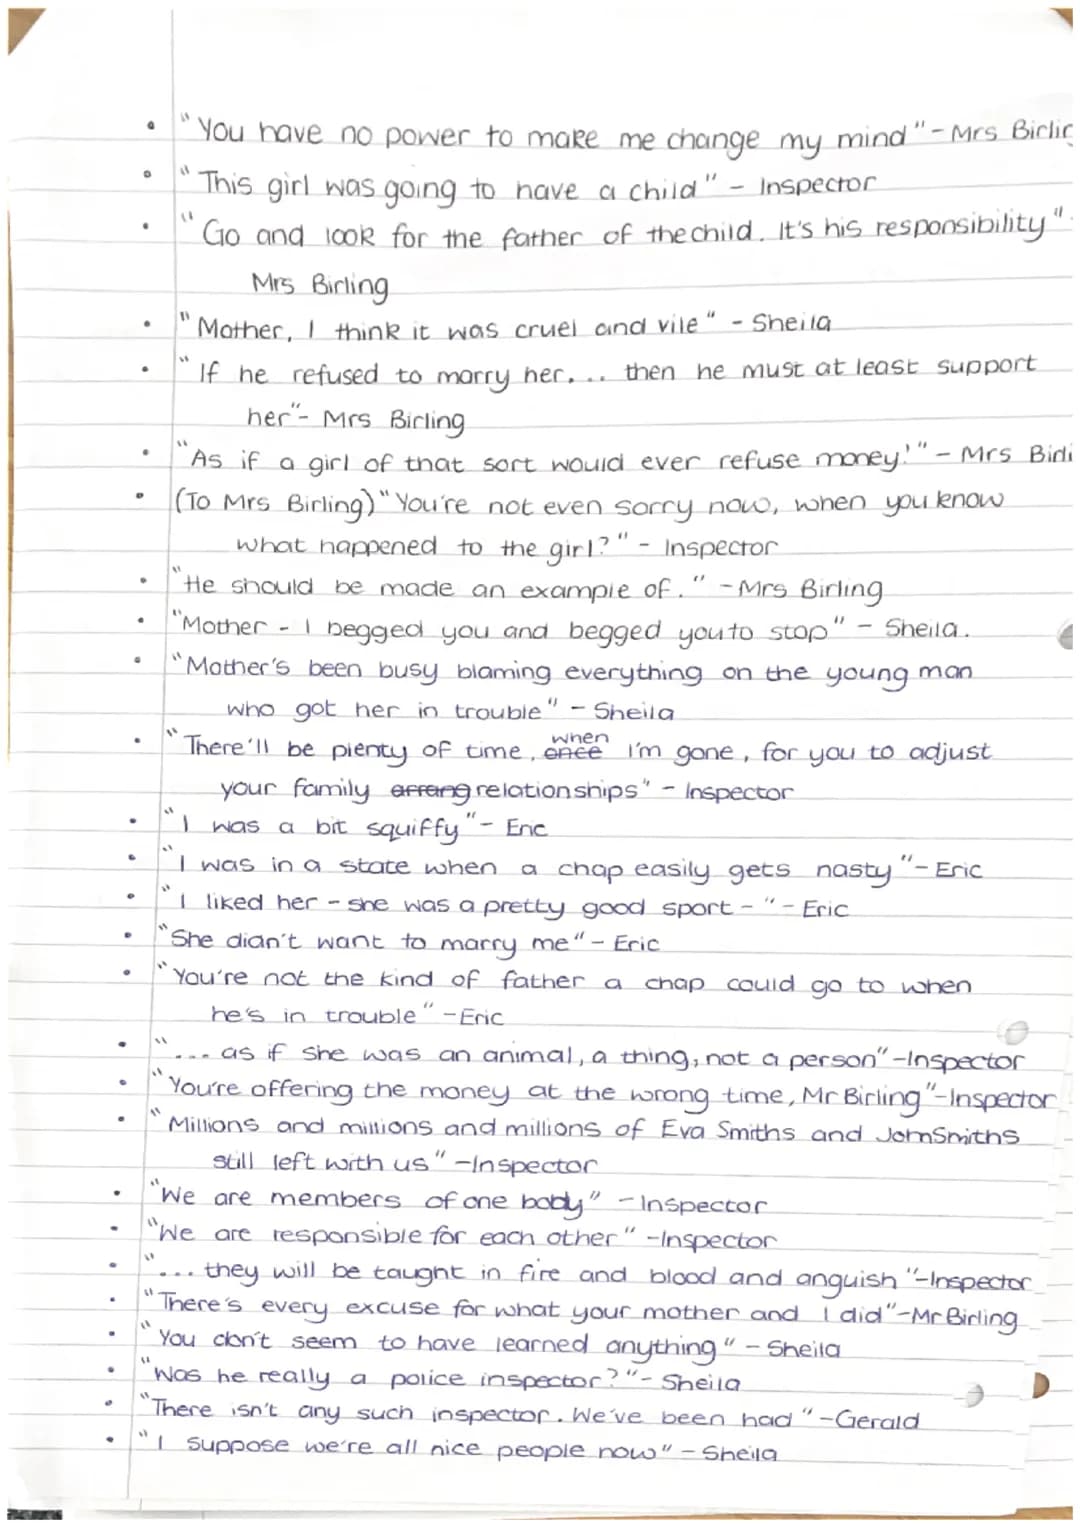 • "You have no power to make me change my mind" - Mrs Birlin
• "This girl was going to have a child" - Inspector
• "Go and look for the father of the child. It's his responsibility" -
Mrs Birling
• "Mother, I think it was cruel and vile" - Sheila
• "If he refused to marry her... then he must at least support
her" - Mrs Birling
• "As if a girl of that sort would ever refuse money!" - Mrs Birli
• (To Mrs Birling) "You're not even sorry now, when you know
what happened to the girl?" - Inspector
• "He should be made an example of." - Mrs Birling
• "Mother - I begged you and begged you to stop" - Sheila.
• "Mother's been busy blaming everything on the young man
who got her in trouble" - Sheila
• "There'll be plenty of time, once when I'm gone, for you to adjust
your family arrang relationships" - Inspector
• "I was a bit squiffy" - Eric
• "I was in a state when a chap easily gets nasty" - Eric
• "I liked her - she was a pretty good sport - " - Eric
• "She didn't want to marry me" - Eric
• "You're not the kind of father a chap could go to when
he's in trouble" - Eric
• "... as if she was an animal, a thing, not a person" - Inspector
• "You're offering the money at the wrong time, Mr Birling" - Inspector
• "Millions and millions and millions of Eva Smiths and John Smiths
still left with us" - Inspector
• "We are members of one body" - Inspector
• "We are responsible for each other" - Inspector
• "... they will be taught in fire and blood and anguish" - Inspector
• "There's every excuse for what your mother and I did" - Mr Birling
• "You don't seem to have learned anything" - Sheila
• "Was he really a police inspector?" - Sheila
• "There isn't any such inspector. We've been had" - Gerald
• "I suppose we're all nice people now" - Sheila